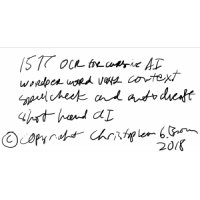 1577 OCR for cursive AI
word per word uses context
spell check and auto
short hand AI
© copyright Christopher G. Brown
2018